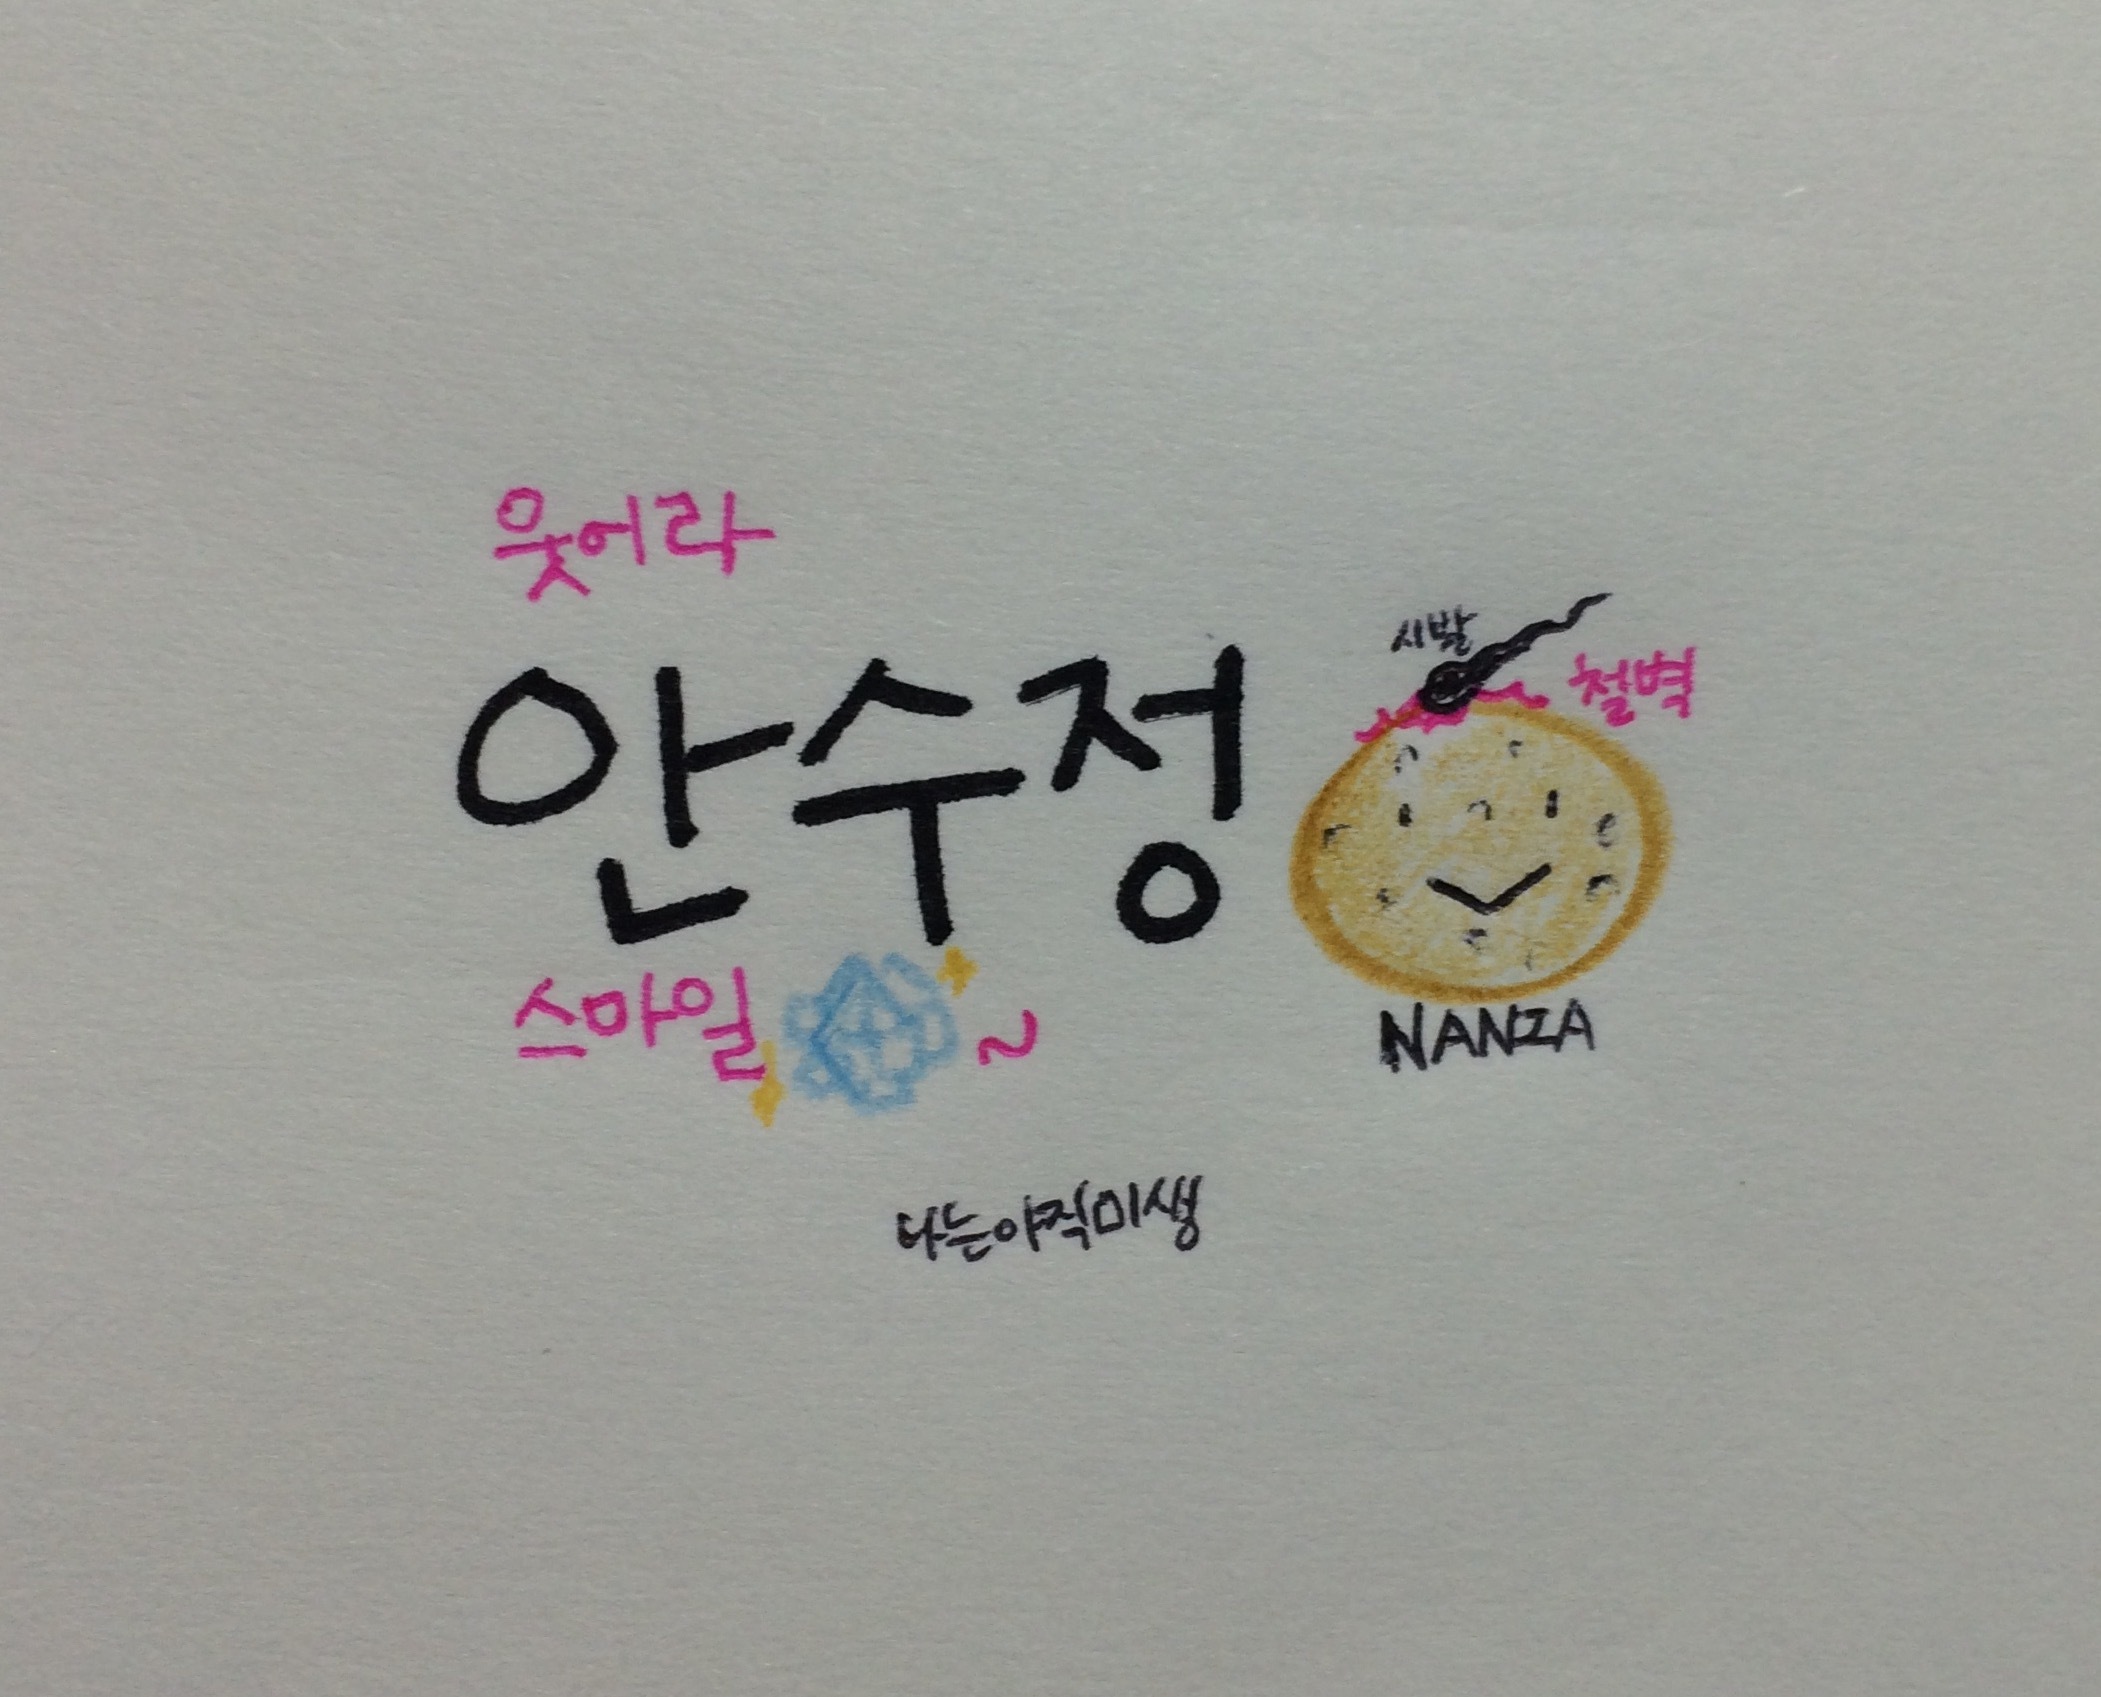 웃어라
시발
철벽
안수정
스마일~
NANZA
나는야직미생